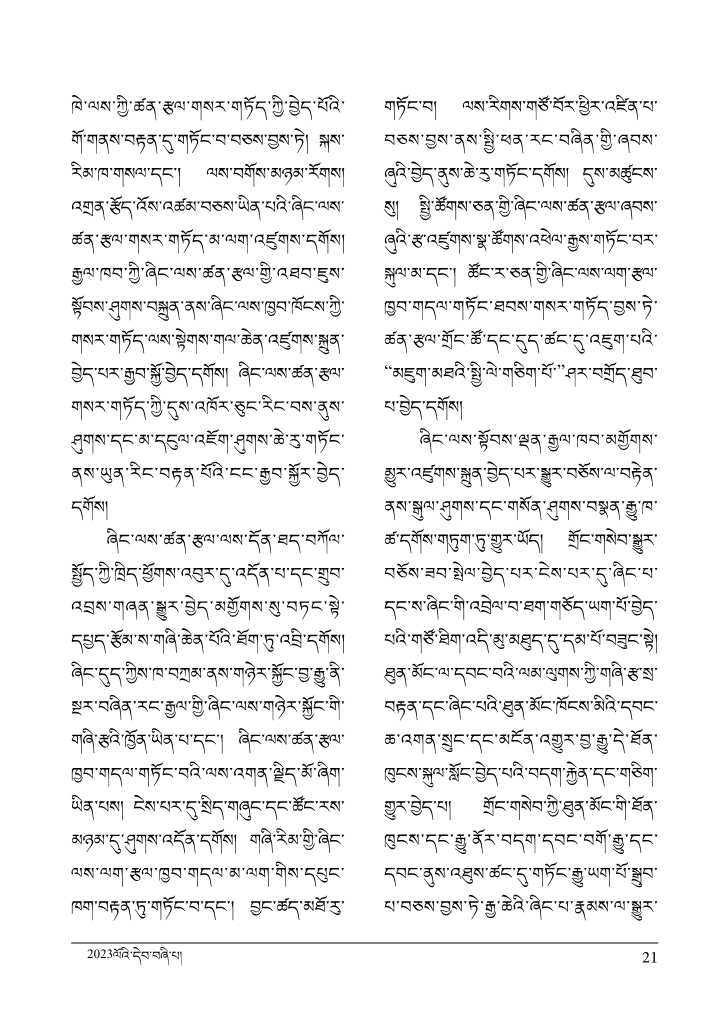 ཁེ་ལས་ཀྱི་ཚན་རྩལ་གསར་གཏོད་ཀྱི་བྱེད་པོའི་
གོ་གནས་བརྟན་དུ་གཏོང་བ་བཅས་བྱས་ཏེ། སྐས་
རིམ་ཁ་གསལ་དང་། ལས་བགོས་མཉམ་རོགས།
འགྲན་རྩོད་འོས་འཚམ་བཅས་ཡིན་པའི་ཞིང་ལས་
ཚན་རྩལ་གསར་གཏོད་མ་ལག་འཛུགས་དགོས།
རྒྱལ་ཁབ་ཀྱི་ཞིང་ལས་ཚན་རྩལ་གྱི་འཐབ་ཇུས་
སྟོབས་ཤུགས་བསྐྲུན་ནས་ཞིང་ལས་ཁྱབ་ཁོངས་ཀྱི་
གསར་གཏོད་ལས་སྟེགས་གལ་ཆེན་འཛུགས་སྐྲུན་
བྱེད་པར་རྒྱབ་སྐྱོ་བྱེད་དགོས། ཞིང་ལས་ཚན་རྩལ་
གསར་གཏོད་ཀྱི་དུས་འཁོར་ཅུང་རིང་བས་ནུས་
ཤུགས་དང་མ་དངུལ་འཇོག་ཤུགས་ཆེ་རུ་གཏོང་
ནས་ཡུན་རིང་བརྟན་པོའི་ངང་རྒྱབ་སྐྱོར་བྱེད་
དགོས།
ཞིང་ལས་ཚན་རྩལ་ལས་དོན་ཐད་བཀོལ་
སྤྱོད་ཀྱི་ཁྲིད་ཕྱོགས་འབུར་དུ་འདོན་པ་དང་གྲུབ་
འབྲས་གཞན་སྒྱུར་བྱེད་མགྱོགས་སུ་བཏང་སྟེ་
དཔྱད་རྩོམ་ས་གཞི་ཆེན་པོའི་ཐོག་ཏུ་འབྲི་དགོས།
ཞིང་དུད་ཀྱིས་ཁ་བཀྲམ་ནས་གཉེར་སྐྱོང་བྱ་རྒྱུ་ནི་
སྔར་བཞིན་རང་རྒྱལ་གྱི་ཞིང་ལས་གཉེར་སྐྱོང་གི་
གཞི་རྩའི་ཁྱོན་ཡིན་པ་དང་། ཞིང་ལས་ཚན་རྩལ་
ཁྱབ་གདལ་གཏོང་བའི་ལས་འགན་ལྗིད་མོ་ཞིག་
ཡིན་པས། ངེས་པར་དུ་སྲིད་གཞུང་དང་ཚོང་རས་
མཉམ་དུ་ཤུགས་འདོན་དགོས། གཞི་རིམ་གྱི་ཞིང་
ལས་ལག་རྩལ་ཁྱབ་གདལ་མ་ལག་གིས་དཔུང་
ཁག་བརྟན་ཏུ་གཏོང་བ་དང་། བྱང་ཚད་མཐོ་རུ་
གཏོང་བ། ལས་རིགས་གཙོ་བོར་ཕྱིར་འཛིན་པ་
བཅས་བྱས་ནས་སྤྱི་ཕན་རང་བཞིན་གྱི་ཞབས་
ཞུའི་བྱེད་ནུས་ཆེ་རུ་གཏོང་དགོས། དུས་མཚུངས་
སུ། སྤྱི་ཚོགས་ཅན་གྱི་ཞིང་ལས་ཚན་རྩལ་ཞབས་
ཞུའི་རྩ་འཛུགས་སྣ་ཚོགས་འཕེལ་རྒྱས་གཏོང་བར་
སྐུལ་མ་དང་། ཚོང་ར་ཅན་གྱི་ཞིང་ལས་ལག་རྩལ་
ཁྱབ་གདལ་གཏོང་ཐབས་གསར་གཏོད་བྱས་ཏེ་
ཚན་རྩལ་གྲོང་ཚོ་དང་དུད་ཚང་དུ་འཇུག་པའི་
“མཇུག་མཐའི་སྤྱི་ལེ་གཅིག་པོ་”ཤར་བགྲོད་ཐུབ་
པ་བྱེད་དགོས།
ཞིང་ལས་སྟོབས་ལྡན་རྒྱལ་ཁབ་མགྱོགས་
མྱུར་འཛུགས་སྐྲུན་བྱེད་པར་སྒྱུར་བཅོས་ལ་བརྟེན་
ནས་སྐུལ་ཤུགས་དང་གསོན་ཤུགས་བསྣན་རྒྱུ་ཁ་
ཚ་དགོས་གཏུག་ཏུ་གྱུར་ཡོད། གྲོང་གསེབ་སྒྱུར་
བཅོས་ཟབ་སྤེལ་བྱེད་པར་ངེས་པར་དུ་ཞིང་པ་
དང་ས་ཞིང་གི་འབྲེལ་བ་ཐག་གཅོད་ཡག་པོ་བྱེད་
པའི་གཙོ་ཐིག་འདི་མུ་མཐུད་དུ་དམ་པོ་བཟུང་སྟེ།
ཐུན་མོང་ལ་དབང་བའི་ལམ་ལུགས་ཀྱི་གཞི་རྩ་སྲ་
བརྟན་དང་ཞིང་པའི་ཐུན་མོང་ཁོངས་མིའི་དབང་
ཆ་འགན་སྲུང་དང་མངོན་འགྱུར་བྱ་རྒྱུ་དེ་ཐོན་
ཁུངས་སྐུལ་སློང་བྱེད་པའི་བདག་རྐྱེན་དང་གཅིག་
གྱུར་བྱེད་པ། གྲོང་གསེབ་ཀྱི་ཐུན་མོང་གི་ཐོན་
ཁུངས་དང་རྒྱུ་ནོར་བདག་དབང་བགོ་རྒྱུ་དང་
དབང་ནུས་འཐུས་ཚང་དུ་གཏོང་རྒྱུ་ཡག་པོ་སྒྲུབ་
པ་བཅས་བྱས་ཏེ་རྒྱ་ཆེའི་ཞིང་པ་རྣམས་ལ་སྒྱུར་
2023ལོའི་དེབ་བཞི་པ།
21